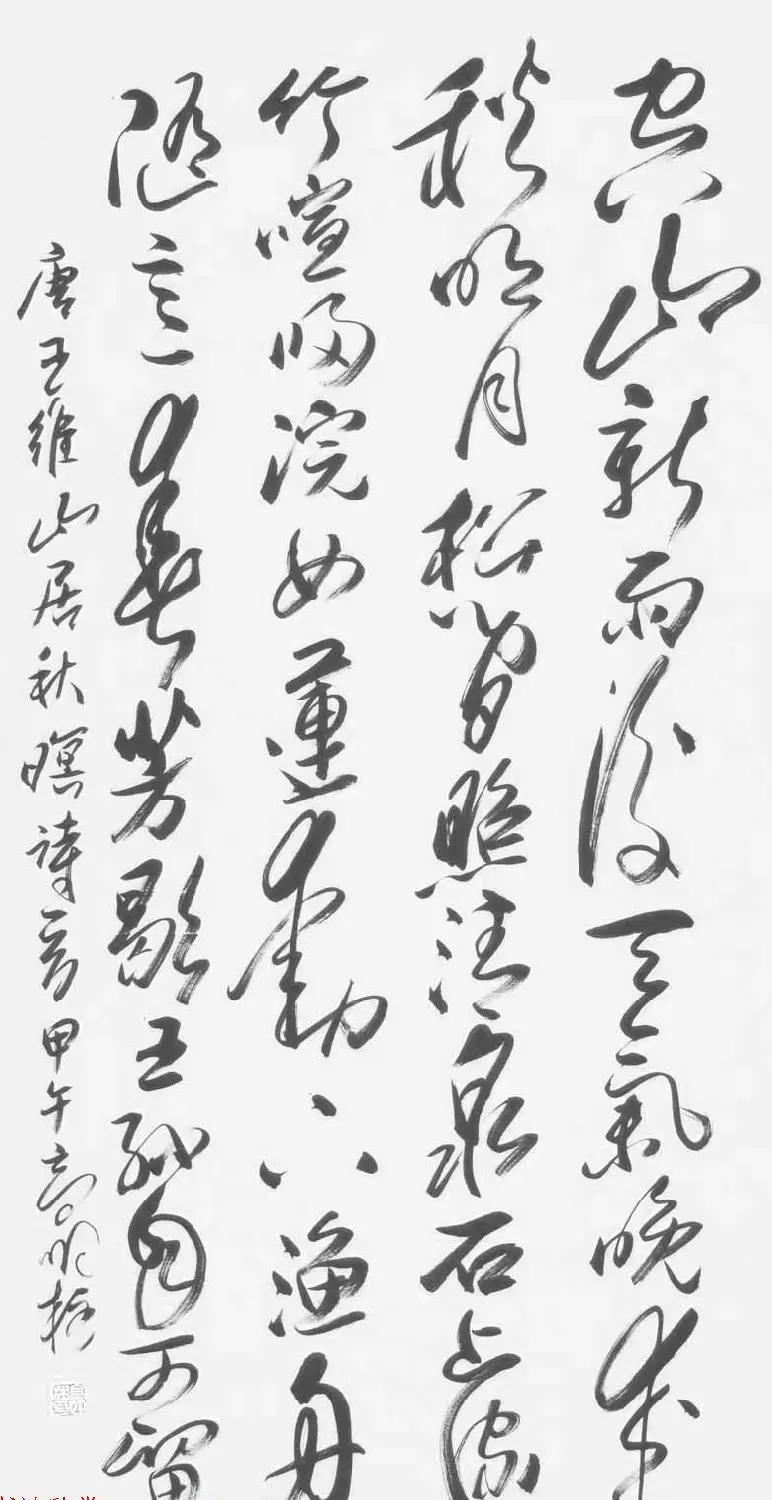 空山新雨後天氣晚來
秋明月松間照清泉石上流
竹喧歸浣女蓮動下漁舟
隨意春芳歇王孫自可留
唐王維山居秋暝詩一首甲午